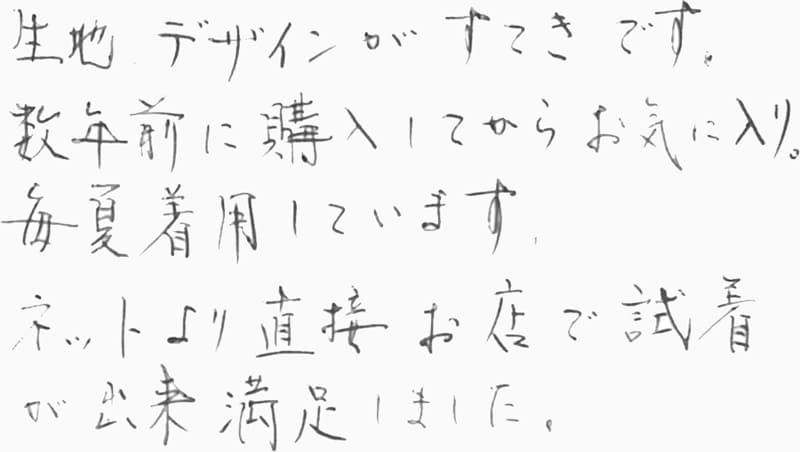 生地 デザインが すてきです。
数年前に購入してからお気に入り。
毎夏着用しています。
ネットより直接お店で試着
が出来満足しました。